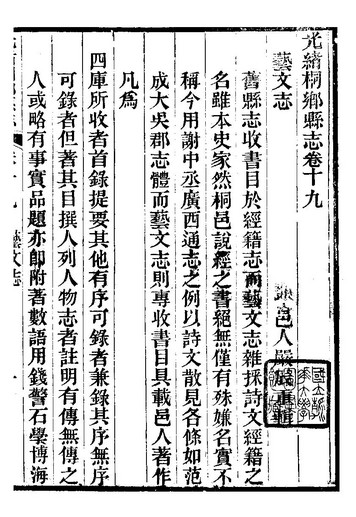 光緒桐鄉縣志卷十九
邑人嚴辰
藝文志
舊縣志收書目於經籍志而藝文志雜採詩文經籍之
名雖本史家然桐邑說經之書絕無僅有殊嫌名實不
稱今用謝中丞廣西通志之例以詩文散見各條如范
成大吳郡志體而藝文志則專收書目具載邑人著作
凡為
四庫所收者首錄提要其他有序可錄者兼錄其序無序
可錄者但著其目撰人列人物志者註明有傳無傳之
人或略有事實品題亦卽附著數語用錢警石學博海
藝文志